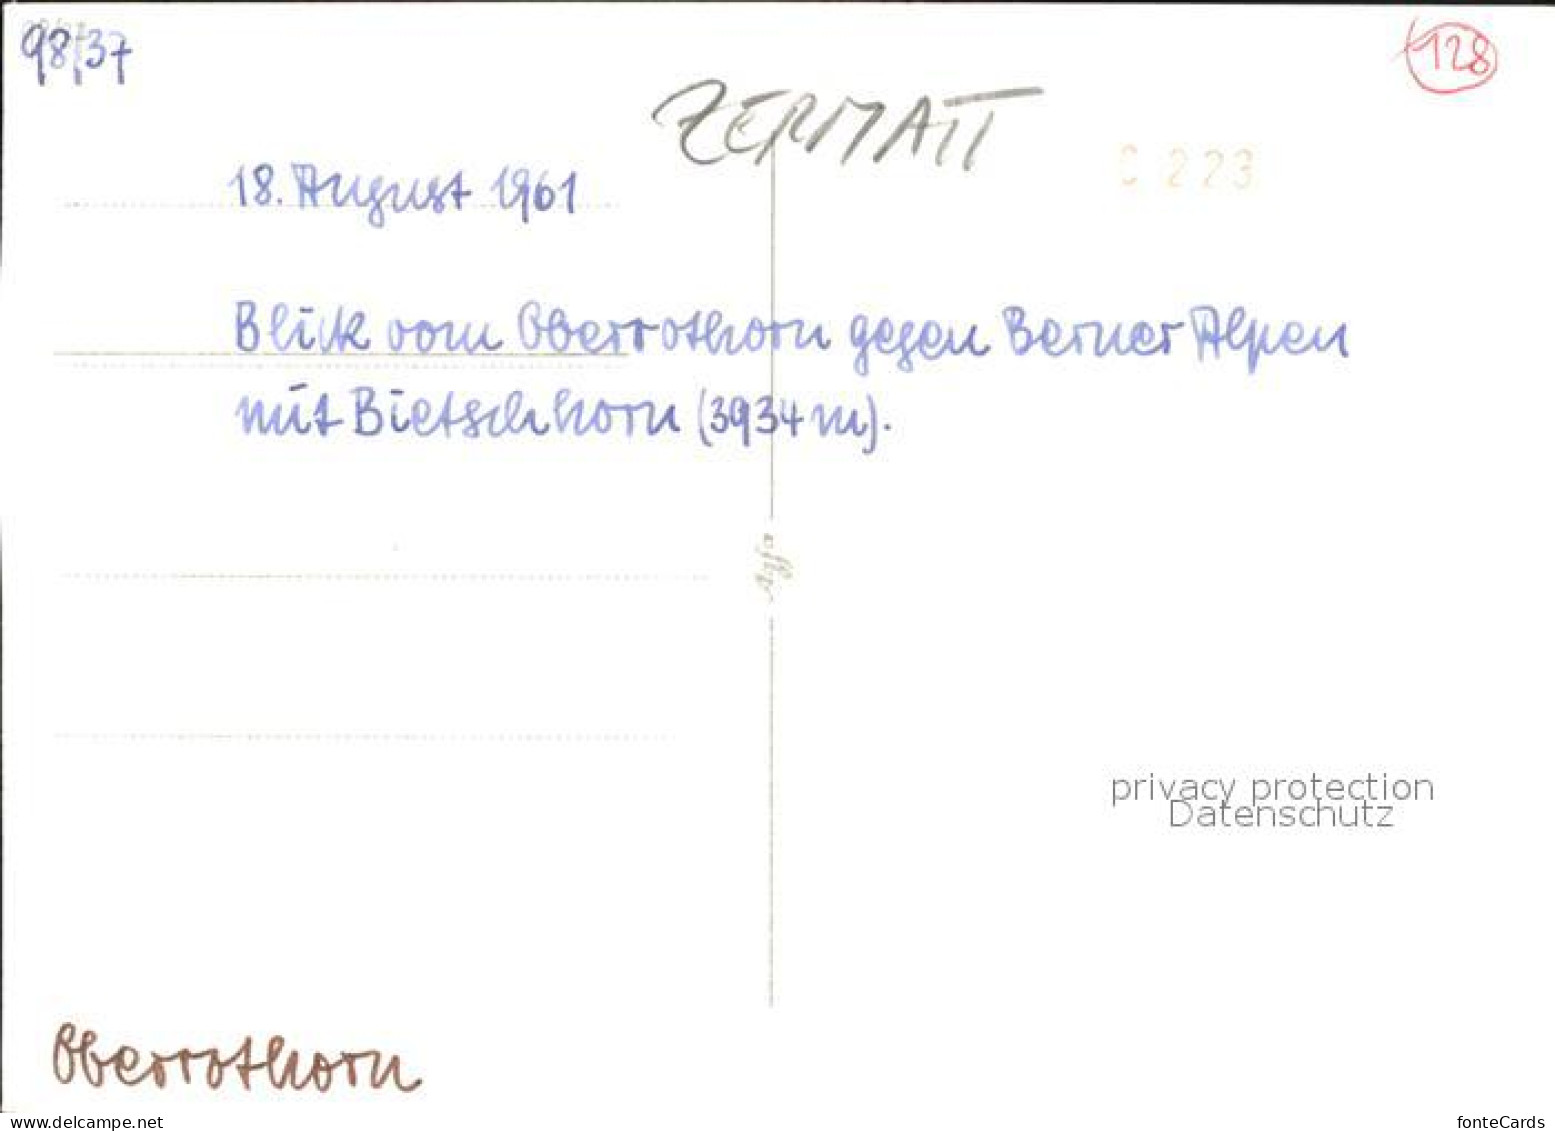 98/37
128
ZERMATT
C 223
18. August 1961
Blick vom Oberrothorn gegen Berner Alpen
mit Bietschhorn (3934 m).
Agfa
privacy protection
Datenschutz
Oberrothorn
www.delcampe.net
fonteCards